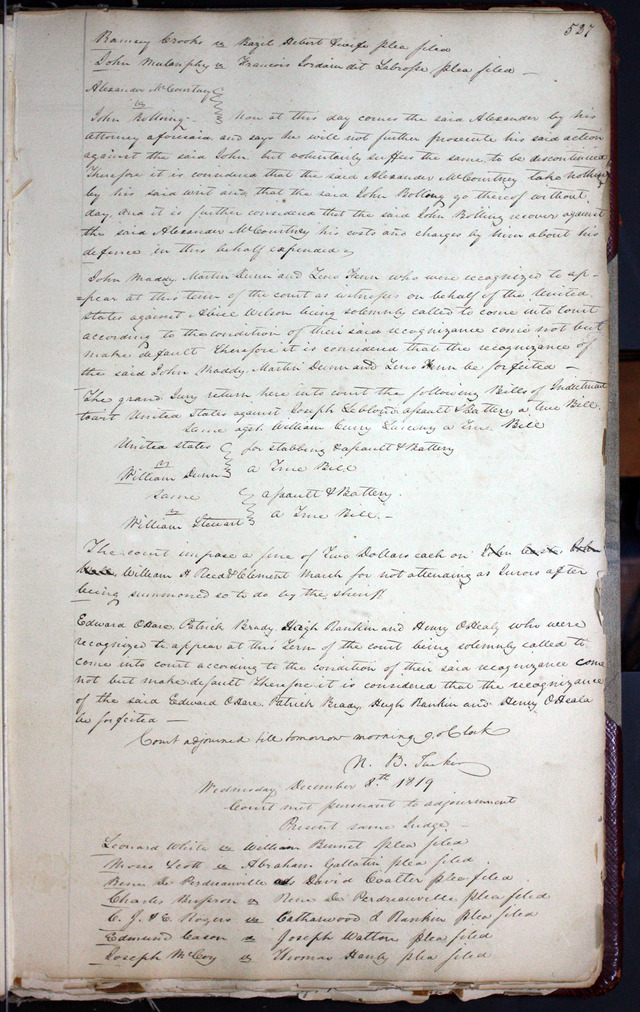 527
Ramsey Crooks vs Bazil Hebert plea filed
John Mulanphy vs Francois Jordain dit Labrosse plea filed —
Alexander McCourtney
vs
John Bolling - Now at this day comes the said Alexander by his
attorney aforesaid and says he will not further prosecute his said action
against the said John, but voluntarily suffers the same to be discontinued
Therefore it is considered that the said Alexander McCourtney take nothing
by his said writ and that the said John Bolling go thereof without
day. And it is further considered that the said John Bolling recover against
the said Alexander McCourtney his costs and charges by him about his
defence in this behalf expended
John Maddy, Martin Dunn and Zeno Fenn who were recognized to ap-
=pear at this term of the court as witnesses on behalf of the United
States against Wilson being solemnly called to come into Court
according to the condition of their said recognizance come not but
make default Therefore it is considered that the recognizance of
the said John Maddy, Martin Dunn and Zeno Fenn be forfeited —
The grand Jury return here into court the following Bills of Indictment
towit United States against Joseph Leblond assault & Battery a True Bill.
Same agst William Larceny a True Bill
United States for stabbing & assault & Battery
vs
William Dunn a True Bill
Same assault & Battery.
vs
William Stewart a True Bill —
The court impose a fine of Two Dollars each on John
William H Reed & Clement March for not attending as Jurors after
being summoned so to do by the sheriff
Edward OHare, Patrick Brady, Hugh Rankin and Henry OHealy who were
recognized to appear at this Term of the court being solemnly called to
come into court according to the condition of their said recognizance come
not but make default Therefore it is considered that the recognizance
of the said Edward OHare, Patrick Brady, Hugh Rankin and Henry OHeala
be forfeited —
Court adjourned till tomorrow morning 9 oClock
N. B. Tucker
Wednesday December 8th 1819
Court met pursuant to adjournment
Present same Judge —
Leonard White vs William Bennet plea filed
Moses Scott vs Abraham Gallatin plea filed.
Rene De Perdreauville vs David Coalter plea filed
Charles vs Rene De Perdreauville plea filed
C. J. & E. Rogers vs Catharwood & Rankin plea filed
Edmund Cason vs Joseph Walton plea filed
Joseph McCoy vs Thomas Hanly plea filed.